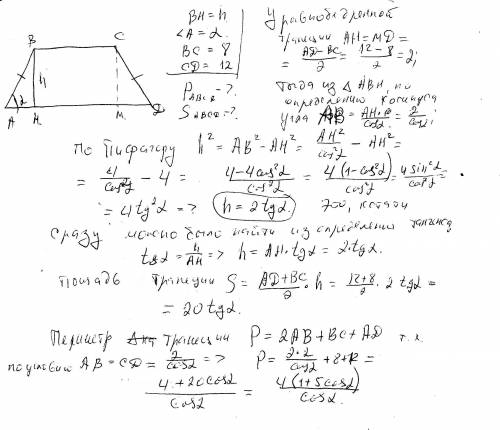 B C
h
A α H M D
BH = h.
∠A = α.
BC = 8
CD = 12
P_ABCD - ?
S_ABCD = ?
У равнобедренной
трапеции AH = MD =
= (AD - BC)/2 = (12 - 8)/2 = 2;
Тогда из △ ABH, по
определению косинуса
угла AB = = 2/cosα.
По Пифагору h² = AB² - AH² = AH²/cos²α - AH² =
= 4/cos²α - 4 = (4 - 4cos²α)/cos²α = 4(1 - cos²α)/cos²α = 4sin²α/cos²α =
= 4tg²α => h = 2tgα. Это, кстати
сразу можно было найти из определения тангенса
tgα = h/AH => h = AH·tgα = 2·tgα.
Площадь трапеции S = (AD + BC)/2 · h = (12 + 8)/2 · 2tgα =
= 20tgα.
Периметр трапеции P = 2AB + BC + AD т.к.
по условию AB = CD = 2/cosα => P = 2·2/cosα + 8 + 12 =
(4 + 20cosα)/cosα = 4(1 + 5cosα)/cosα.